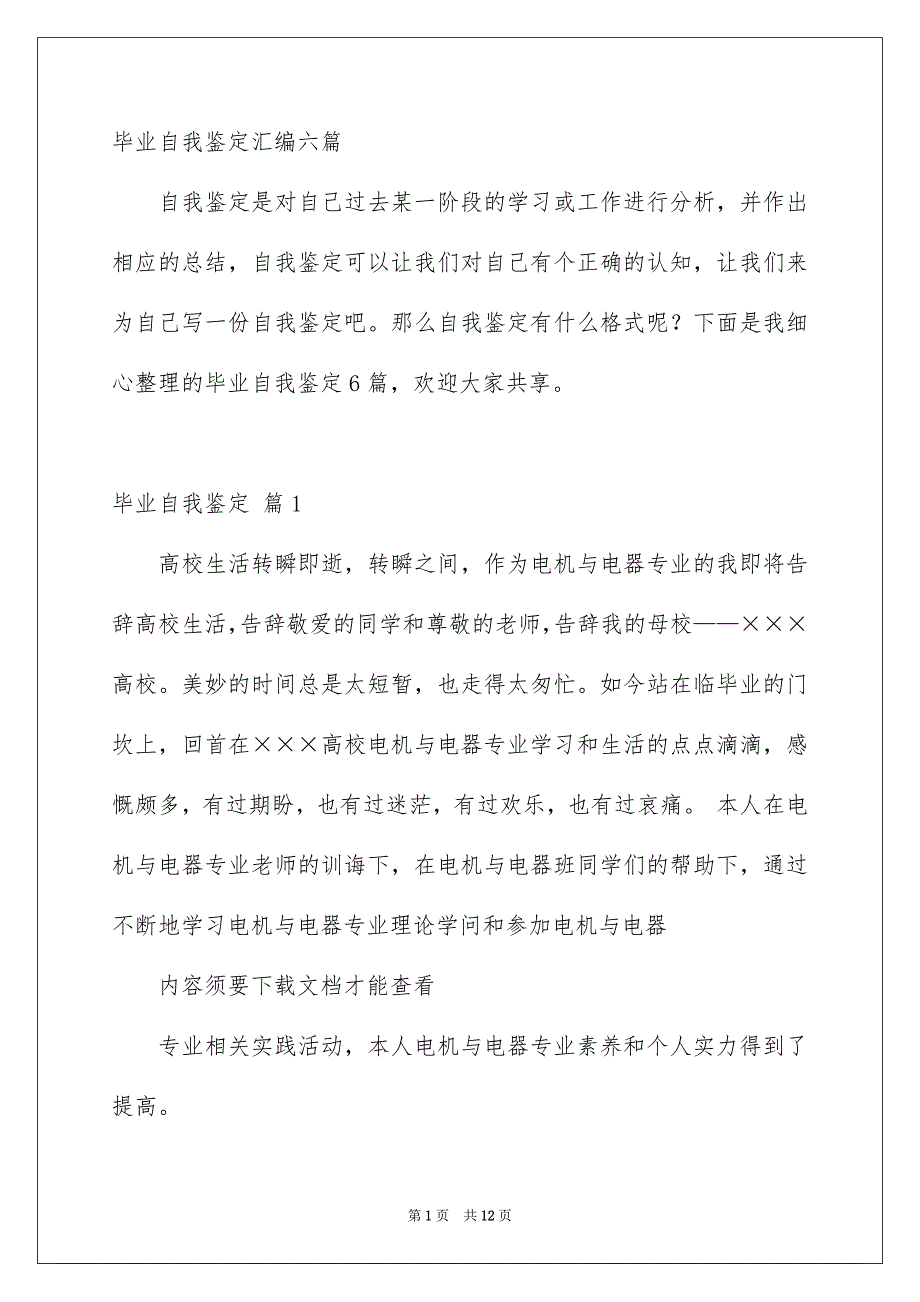 毕业自我鉴定汇编六篇
自我鉴定是对自己过去某一阶段的学习或工作进行分析，并作出
相应的总结，自我鉴定可以让我们对自己有个正确的认知，让我们来
为自己写一份自我鉴定吧。那么自我鉴定有什么格式呢？下面是我细
心整理的毕业自我鉴定6篇，欢迎大家共享。
毕业自我鉴定 篇1
高校生活转瞬即逝，转瞬之间，作为电机与电器专业的我即将告
辞高校生活，告辞敬爱的同学和尊敬的老师，告辞我的母校——×××
高校。美妙的时间总是太短暂，也走得太匆忙。如今站在临毕业的门
坎上，回首在×××高校电机与电器专业学习和生活的点点滴滴，感
慨颇多，有过期盼，也有过迷茫，有过欢乐，也有过哀痛。 本人在电
机与电器专业老师的训诲下，在电机与电器班同学们的帮助下，通过
不断地学习电机与电器专业理论学问和参加电机与电器
内容须要下载文档才能查看
专业相关实践活动，本人电机与电器专业素养和个人实力得到了
提高。
第1页 共12页